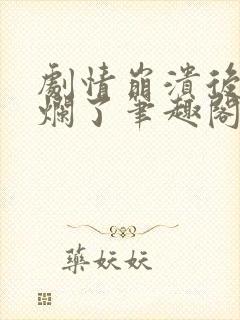 劇情崩潰後
爛了筆趣閣
藥妖妖